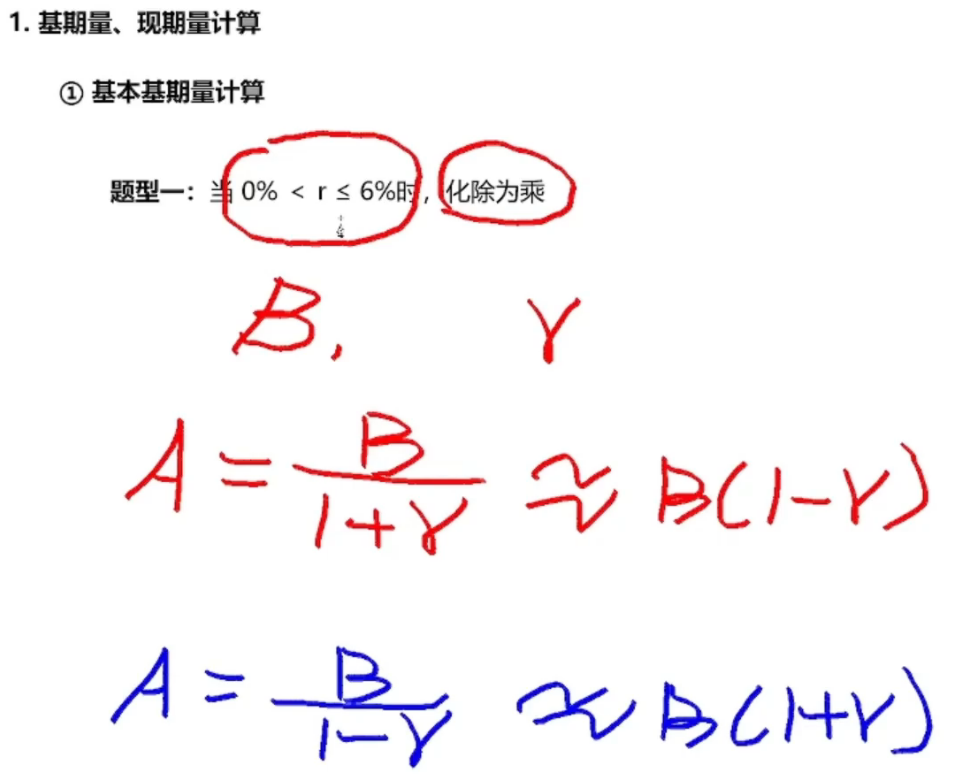 1. 基期量、现期量计算
① 基本基期量计算
题型一：当 0% < r ≤ 6%时，化除为乘
B, r
A = B/(1+r) ≈ B(1-r)
A = B/(1-r) ≈ B(1+r)